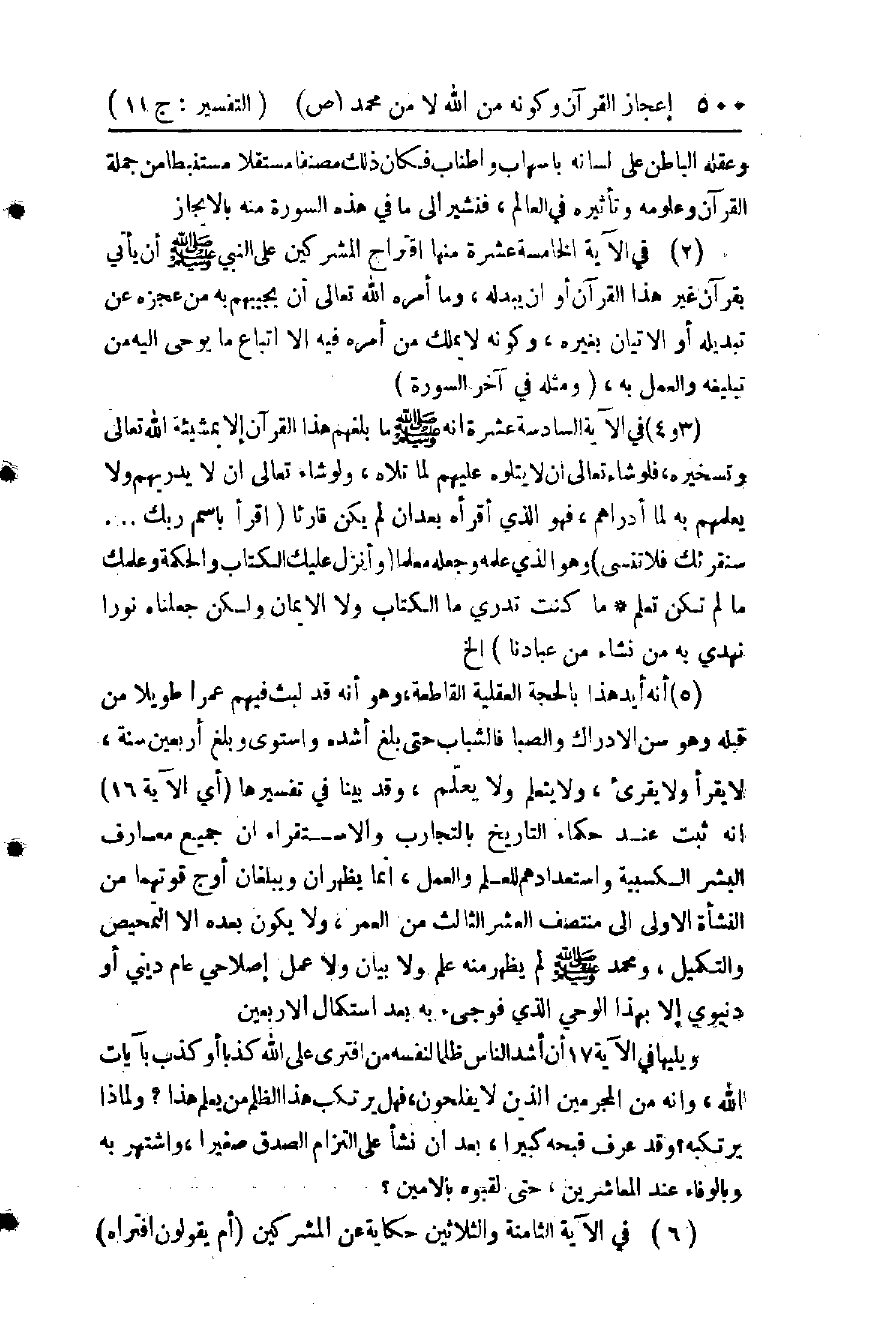 ٥٠٠ إعجاز القرآن وكونه من الله لا من محمد (ص) (التفسير : ج ١١)
وعقله الباطن على لسانه باسهاب واطناب فكان ذلك مصنفا مستقلا مستنبطا من جملة
القرآن وعلومه وتأثيره في العالم ، فنشير الى ما في هذه السورة منه بالايجاز
(٢) في الآية الخامسة عشرة منها اقتراح المشركين على النبي ﷺ أن يأتي
بقرآن غير هذا القرآن أو ان يبدله ، وما أمره الله تعالى أن يجيبهم به من عجزه عن
تبديله أو الاتيان بغيره ، وكونه لا يملك من أمره فيه الا اتباع ما يوحى اليه من
تبليغه والعمل به ، ( ومثله في آخر السورة )
(٣و٤) في الآية السادسة عشرة انه ﷺ ما بلغهم هذا القرآن إلا بمشيئة الله تعالى
وتسخيره، فلو شاء تعالى ان لا يتلوه عليهم لما تلاه ، ولو شاء تعالى ان لا يدريهم ولا
يعلمهم به لما أدراهم ، فهو الذي أقرأه بعد ان لم يكن قارئا ( اقرأ باسم ربك ....
سنقرئك فلا تنسى) وهو الذي علمه وجعله معلما (وأنزل عليك الكتاب والحكمة وعلمك
ما لم تكن تعلم * ما كنت تدري ما الكتاب ولا الايمان ولكن جعلناه نورا
نهدي به من نشاء من عبادنا ) الخ
(٥) أنه أيد هذا بالحجة العقلية القاطعة، وهو أنه قد لبث فيهم عمرا طويلا من
قبله وهو سن الادراك والصبا فالشباب حتى بلغ أشده واستوى وبلغ أربعين سنة ،
لا يقرأ ولا يقرئ ، ولا يتعلم ولا يعلّم ، وقد بينا في تفسيرها (أي الآية ١٦)
انه ثبت عنـد حكماء التاريخ بالتجارب والاستقراء ان جميع معارف
البشر الكسبية واستعدادهم للعلم والعمل ، انما يظهران ويبلغان أوج قوتهما من
النشأة الاولى الى منتصف العشر الثالث من العمر ، ولا يكون بعده الا التمحيص
والتكميل ، ومحمد ﷺ لم يظهر منه علم ولا بيان ولا عمل إصلاحي عام ديني أو
دنيوي إلا بهذا الوحي الذي فوجىء به بعد استكمال الاربعين
ويليها في الآية ١٧ أن أشد الناس ظلما لنفسه من افترى على الله كذبا أو كذب بآيات
الله ، وانه من المجرمين الذين لا يفلحون، فهل يرتكب هذا الظلم من يعلم هذا ؟ ولماذا
يرتكبه؟ وقد عرف قبحه كبيرا ، بعد ان نشأ على التزام الصدق صغيرا ، واشتهر به
وبالوفاء عند المعاشرين ، حتى لقبوه بالامين ؟
( ٦ ) في الآية الثامنة والثلاثين حكاية عن المشركين (أم يقولون افتراه)